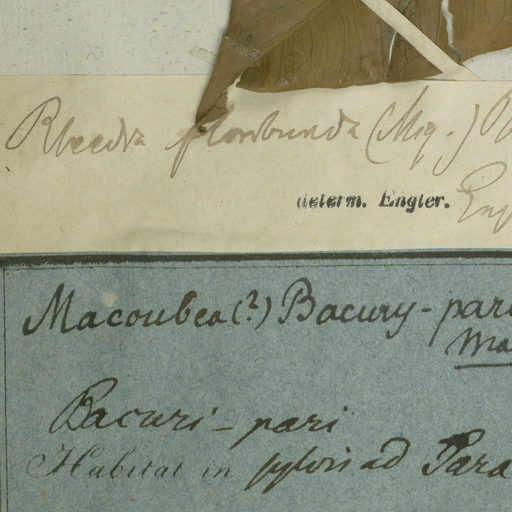 Rheedia floribunda (Miq.) P
determ. Engler. Eng
Macoubea (?) Bacury-pari
Ma
Bacuri-pari
Habitat in sylvis ad Para